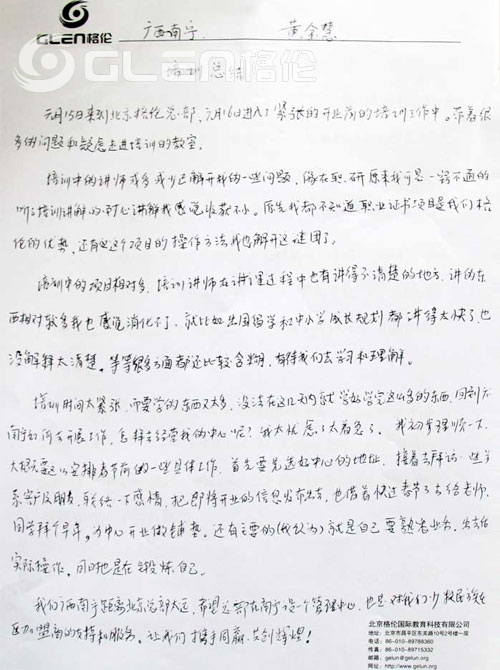 GLEN格伦
广西南宁 黄金慧
GLEN格伦
培训总结
元月15日来到北京格伦总部,元月16日进入了紧张的开业前的培训工作中。带着很
多的问题和疑虑走进培训的教室。
培训中的讲师或多或少已解开我的一些问题,像在职研原来我可是一窍不通的
听了培训讲解的耐心讲解我感觉收获不小。原先我都不知道职业证书项目是我们格
伦的优势,还有这个项目的操作方法我也解开这谜团了。
培训中的项目相对多,培训讲师在讲课过程中也有讲得不清楚的地方,讲的东
西相对较多我也感觉消化不了,就比如出国留学和中小学成长规划都讲得太快了也
没解释太清楚。等等很多方面都还比较含糊,有待我们去学习和理解。
培训时间太紧张,需要学的东西又太多,没法在这几天内就学好学完这么多的东西,回到
南宁如何去开展工作,怎样去经营我的中心呢?我太忧虑了太着急了。我初步理顺一下,
大概要这么安排春节前的一些具体工作,首先要先选好中心的地址,接着去拜访一些关
系客户及朋友,联络一下感情,把即将开业的信息发布出去,也借着快过春节了去给老师、
同学拜个早年。为中心开业做铺垫。还有主要的(我认为)就是自己要熟悉业务,出去给
实际操作,同时也是在锻炼自己。
我们广西南宁距离北京总部太远,希望总部在南宁设一个管理中心,也是对我们少数民族地
区加盟商的支持和服务,让我们携手同赢,共创辉煌!
北京格伦国际教育科技有限公司
地址:北京市昌平区东关路10号2号楼
电话:86-010-89788360
传真:86-010-89715332
邮箱:gelun@gelun.org
网址:www.gelun.org